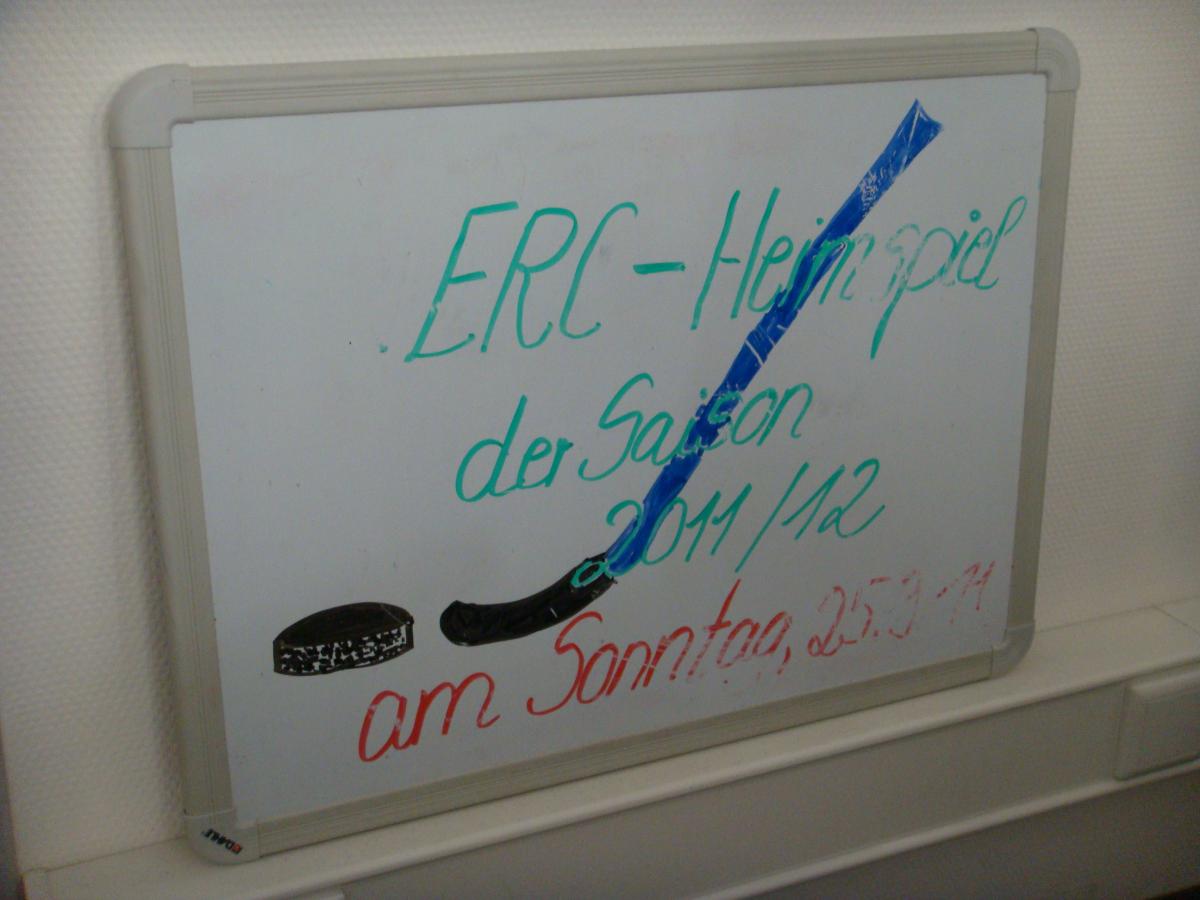 ERC - Heimspiel
der Saison
2011/12
am Sonntag, 25.9.11
DAHLE